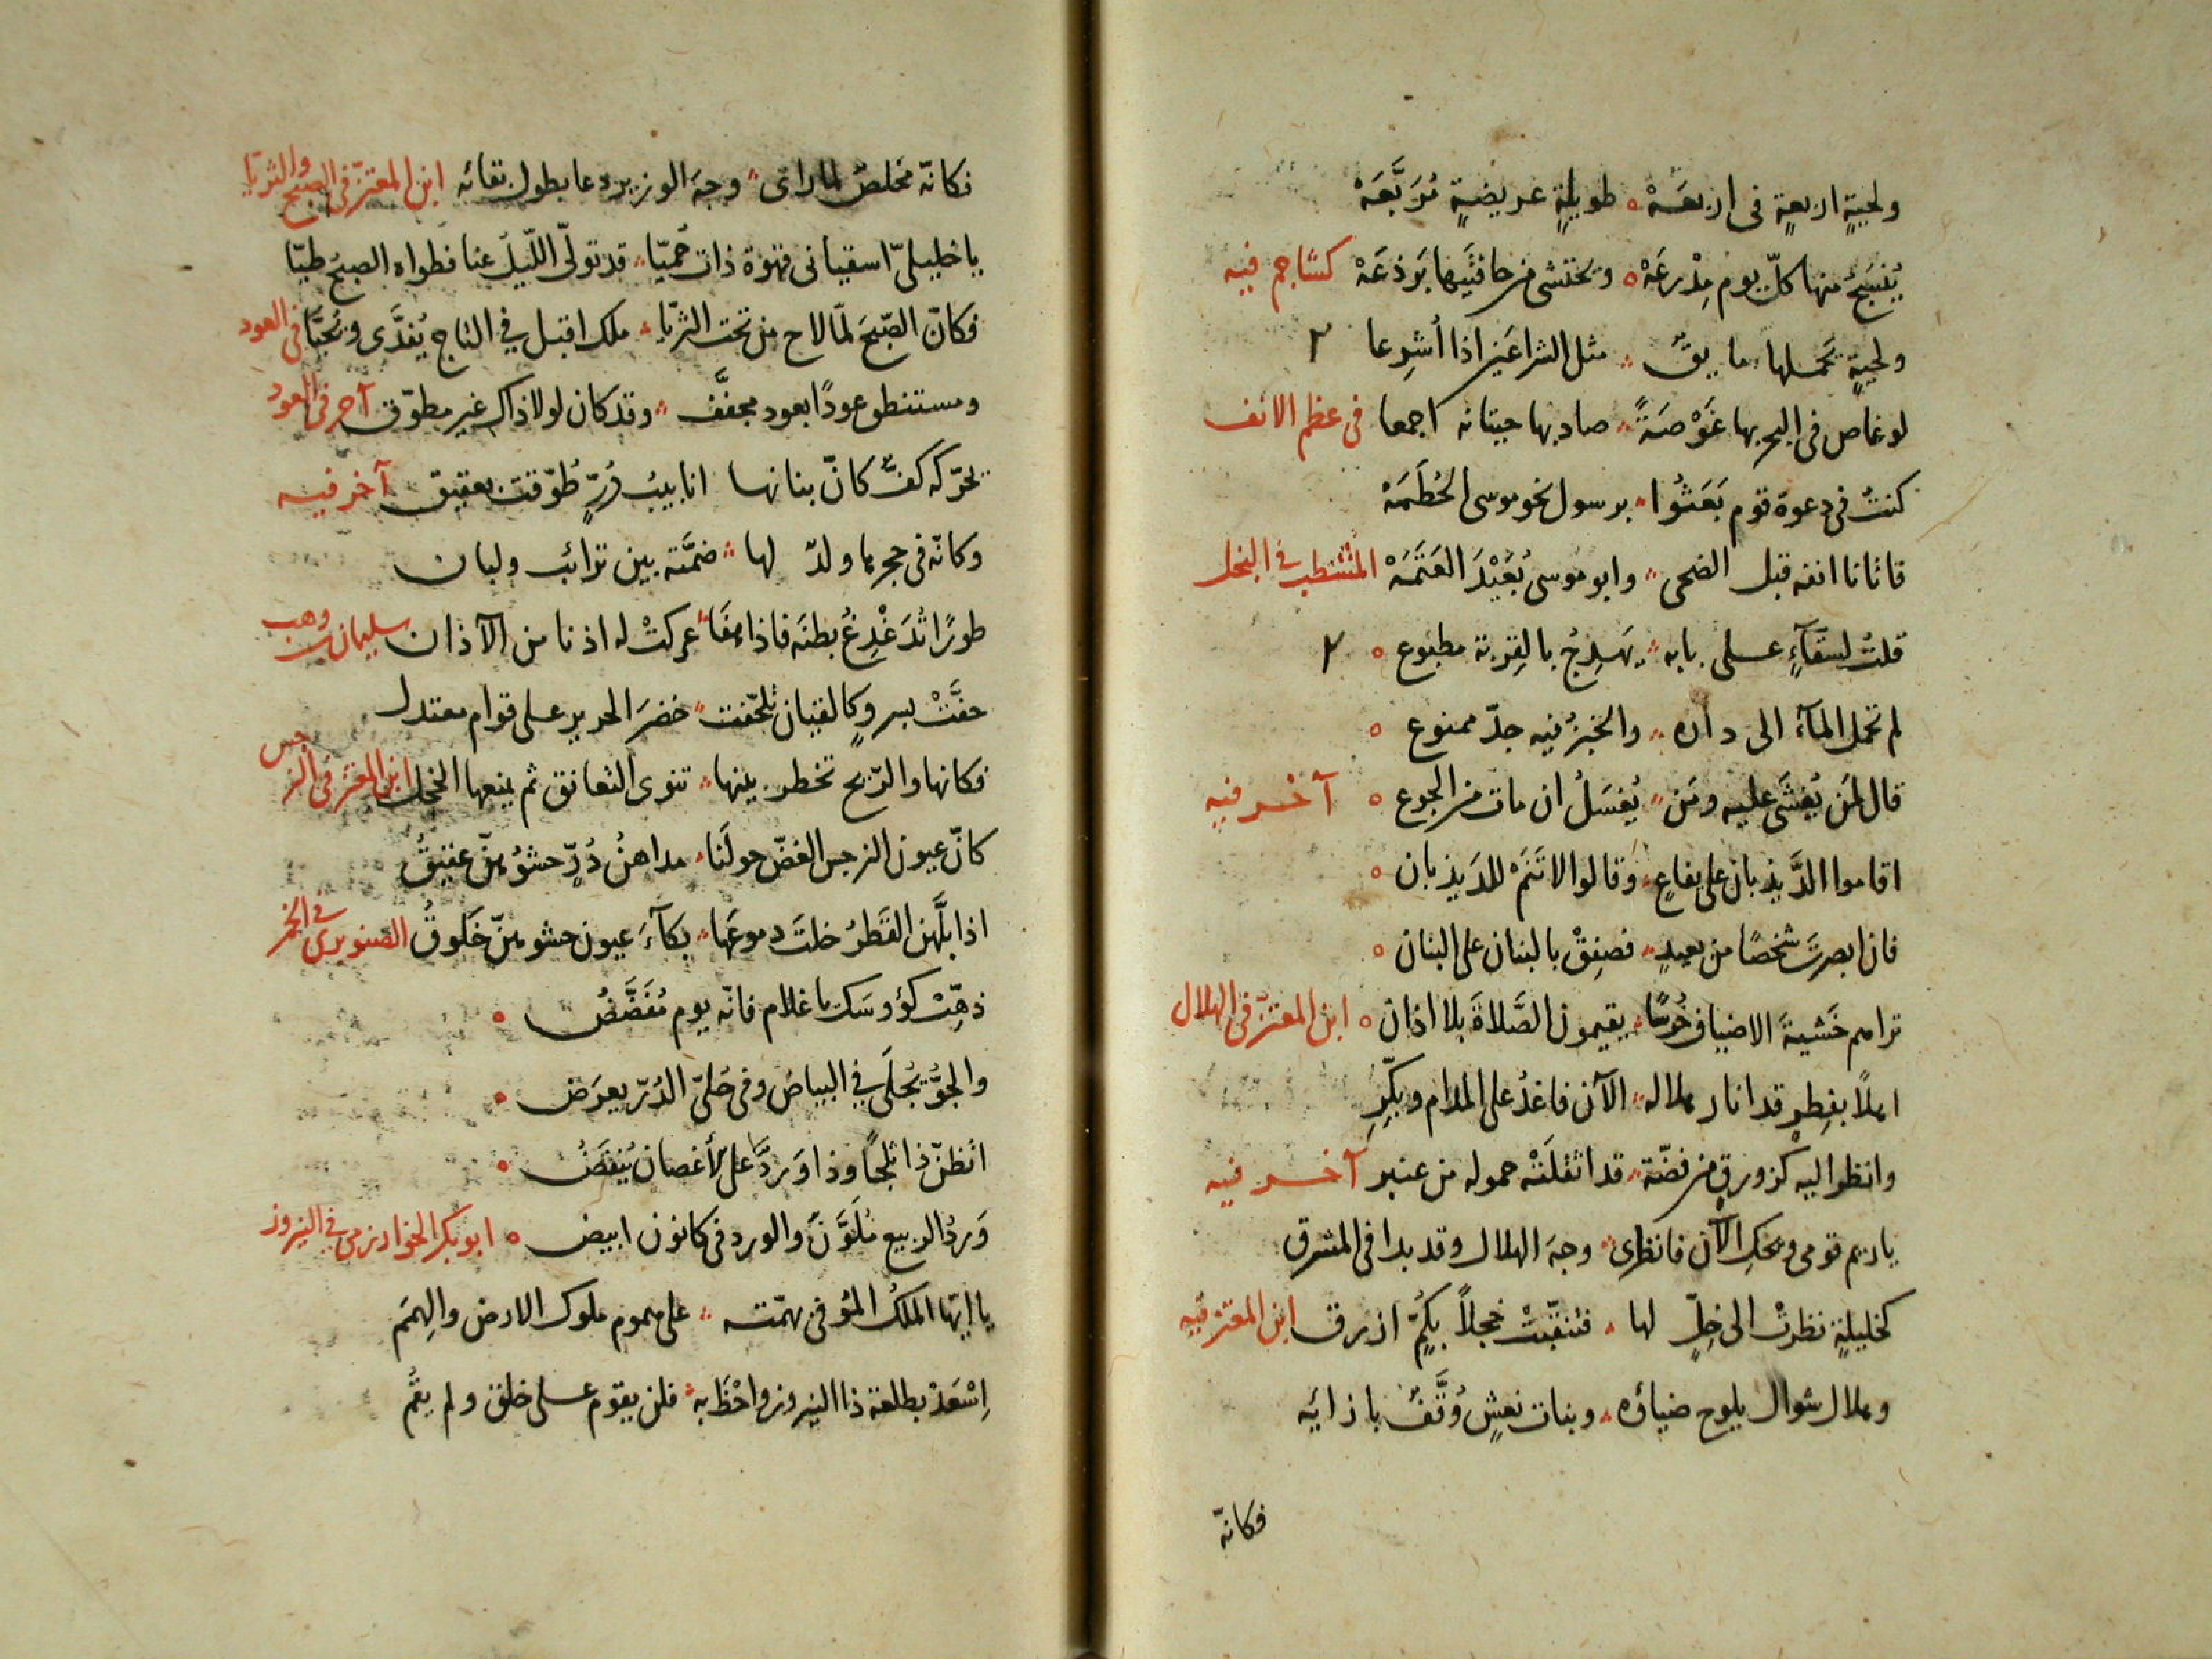 ولحيةٍ اربعةٍ فى اربعَهْ ٥ طويلةٍ عريضةٍ مُرَبَّعَهْ
يُنسَجُ منها كلّ يوم مِدْرعَهْ ٥ وتحتشى من حافتَيها بَرذعَهْ كشاجم فيه
ولحيةٍ يَحملها مايقٌ مثل الشراعَين اذا أُشرِعا ٢
لو غاص فى البحر بها غَوْصَةً صاد بها حيتانه اجمعا فى عظم الانف
كنتُ فى دعوة قوم بَعَثُوا برسول نحو موسى الحُطَمَهْ
فاتانا انفه قبل الضحى وابو موسى بُعَيْدَ العَتَمَهْ فى البخل
قلتُ لسقّآءٍ على بابه يَهدِجُ بالقِربة مطبوع ٥ ٢
لم تحمل المآء الى داره والخبزُ فيه جدّ ممنوع ٥
قال لمَن يُغشَى عليه ومَن يُغسَلُ ان مات من الجوع ٥ آخر فيه
اقاموا الدَّيذبان على يفاعٍ وقالوا لا تَنَمْ للدَيذبان ٥
فان ابصرتَ شخصًا من بعيدٍ فصفِقْ بالبنان على البنان ٥
تراهم خَشيةَ الاضياف خُرسًا يقيمون الصَّلاةَ بلا اذان ٥ ابن المعتزّ فى الهلال
اهلاً بفِطرٍ قد انار هلاله الآن فاغدُ على المدام وبكّرِ
وانظر اليه كزورقٍ من فضّة قد اثقلَتْه حموله من عنبر آخر فيه
ياريم قومى ويحكِ الآن فانظرى وجهَ الهلال وقد بدا فى المشرق
كخليلةٍ نظرتْ الى خِلٍّ لها فتنقّبَتْ خجلاً بكُمٍّ ازرق ابن المعتز فيه
وهلال شوال يلوح ضياؤه وبنات نعشٍ وُقَّفٌ بازائه
فكانّه
فكانّه مخلصٌ لما راى وجهَ الوزير دعا بطول بقائه ابن المعتزّ فى الصبح والثريّا
ياخليلىّ اسقيانى قهوة ذات حُميّا قد تولّى اللّيل عنا فطواه الصبحُ طيّا
فكانّ الصّبحَ لمّا لاح من تحت الثريّا ملك اقبل فى التاج يُفدَّى ويُحيَّا فى العود
ومستنطق عودًا بعود مجفَّف وقد كان لولا ذاك غير مطوّق آخر فى العود
تحرّكه كفٌّ كانّ بنانها انابيبُ دُرٍّ طُوّقت بعقيق آخر فيه
وكانّه فى حجرها ولدٌ لها ضمَّته بين ترائب ولبان
طورًا تُدَغْدِغُ بطنَه فاذا هفَا عركتْ له اذنا من الآذان سليمان بن وهب
حفَّتْ بسروٍ كالقيان تلحّفت خضرَ الحرير على قوام معتدل
فكانها والرّيح تخطر بينها تنوى التعانق ثم يمنعها الخجل ابن المعتز فى النرجس
كانّ عيون النرجس الغضّ حولَنا مداهنُ دُرٍّ حشوُهنّ عقيقُ
اذا بلَّهن القَطرُ خلتَ دموعَها بكآءَ عيون حشوهنّ خَلوقُ الصنوبرى فى الخمر
ذهّبْ كؤوسَك يا غلام فانّه يوم مُفَضَّضُ ٥
والجوُّ يُجلَى فى البياض وفى حُلىّ الدُرّ يعرَض ٥
اتظنّ ذا ثلجًا وذا وَردًا على الأغصان يُنفَضُ ٥
وَردُ الربيع مُلَوَّنٌ والورد فى كانون ابيض ٥ ابو بكر الخوارزمى فى النيروز
يا ايّها الملكُ الموفى بهمّته على هموم ملوك الارض والهِمَم
اِسْعَدْ بطلعة ذا النيروز واحْظَ به فلن يقوم على خلق ولم يقُم